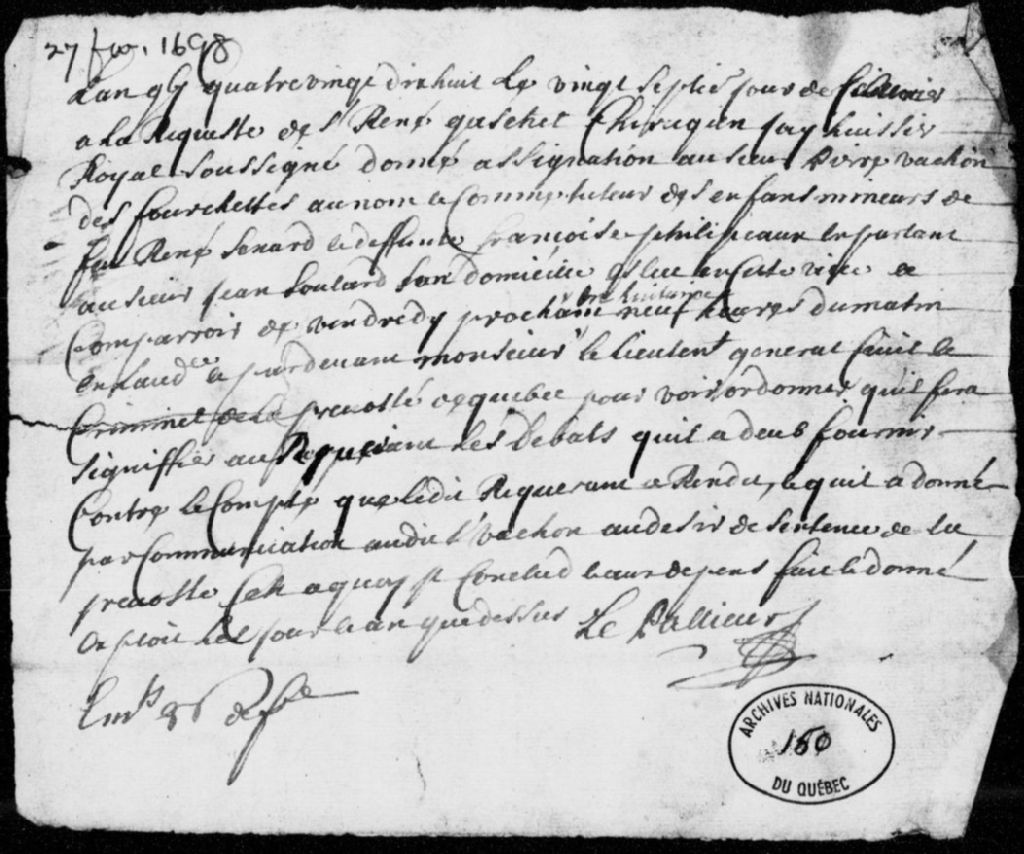 27 fev. 1698
Lan gbj quatre vingt dix huit Le vingt septie jour de
a La Requeste de Sr René gaschet Chirugien jay huissier
Royal soussigné donné assignation au sieur Peirre vachon
des fourchettes au nom & Comme tuteur des enfans mineurs de
feu René Senard & deffunte françoise philipeaux en parlant
au sieur jean soulard son domicille eslue en Cette ville a
Comparroir de vendredy prochain en huitaine neuf heures du matin
en Laudce & pardevant monsieur le Lieutent general Civil &
Criminel de La prevosté de quebec pour voir ordonner quil fera
signiffier au Requerant Les Debats quil a deub fournir
Contre le Compte que ledit Requerant a Rendu, & quil a donné
par Communication audit Sr vachon au desir de sentence de la
prevosté a quoy il Conclud & aux depens fait & donné
Exploit les jour & an que dessus Le Pallieur